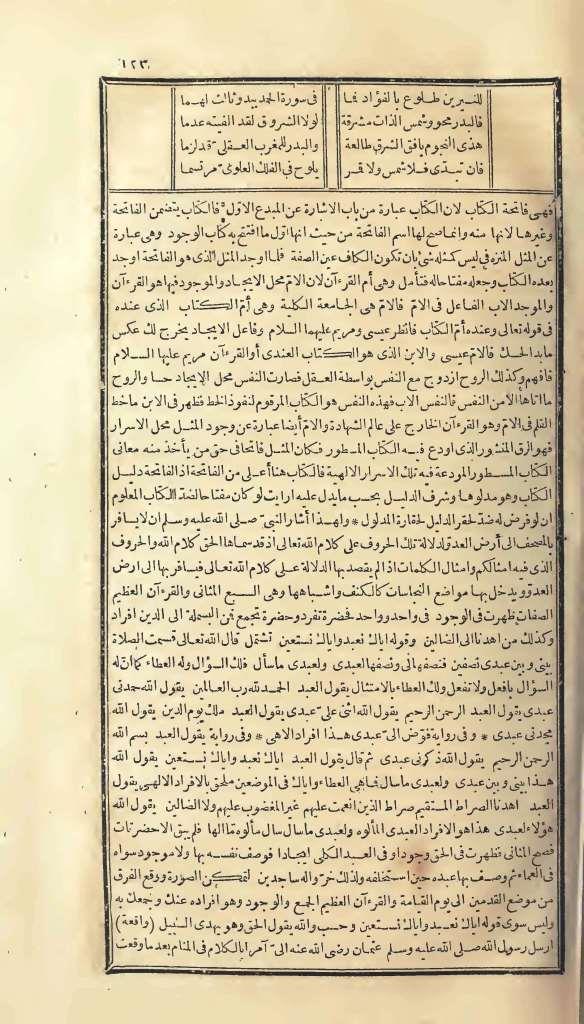 ١٢٣
للنيرين طلوع بالفؤاد فما في سورة الحمد يبدو ثالث لهما
فالبدر محو وشمس الذات مشرقة لولا الشروق لقد الفيته عدما
هذى النجوم بافق الشرق طالعة والبدر للمغرب العقلي قد لزما
فان تبدى فلا شمس ولا قمر يلوح في الفلك العلوي مرتسما
فهي فاتحة الكتاب لان الكتاب عبارة من باب الاشارة عن المبدع الاول فالكتاب يتضمن الفاتحة
وغيرها لانها منه وانما صح لها اسم الفاتحة من حيث انها اول ما افتتح به كتاب الوجود وهي عبارة
عن المثل المنزه في ليس كمثله شئ بان تكون الكاف عين الصفة فلما اوجد المثل الذي هو الفاتحة اوجد
بعده الكتاب وجعله مفتاحا له فتأمل وهي أم القرءآن لان الام محل الايجاد والموجود فيها هو القرءآن
والموجد الاب الفاعل في الام فالام هي الجامعة الكلية وهي أم الكتاب الذي عنده
في قوله تعالى وعنده أم الكتاب فانظر عيسى ومريم عليهما السلام وفاعل الايجاد يخرج لك عكس
ما بدا لحسك فالام عيسى والابن الذي هو الكتاب العندي أو القرءآن مريم عليها السلام
فافهم وكذلك الروح ازدوج مع النفس بواسطة العقل فصارت النفس محل الايجاد حسا والروح
ما اتاها الا من النفس فالنفس الاب فهذه النفس هو الكتاب المرقوم لنفوذ الخط فظهر في الابن ما خط
القلم في الام وهو القرءآن الخارج على عالم الشهادة والام أيضا عبارة عن وجود المثل محل الاسرار
فهو الرق المنشور الذي اودع فيه الكتاب المسطور فكان المثل فاتحا في حق من يأخذ منه معانى
الكتاب المسطور المودعة فيه تلك الاسرار الالهية فالكتاب هنا أعلى من الفاتحة اذ الفاتحة دليل
الكتاب وهو مدلولها وشرف الدليل بحسب ما يدل عليه ارايت لو كان مفتاحا لضد الكتاب المعلوم
ان لو فرض له ضد لحقر الدليل لحقارة المدلول * ولهذا أشار النبي صلى الله عليه وسلم ان لا يسافر
بالمصحف الى أرض العدو لدلالة تلك الحروف على كلام الله تعالى اذ قد سماها الحق كلام الله والحروف
الذي فيه امثالكم وامثال الكلمات اذا لم يقصد بها الدلالة على كلام الله تعالى فيسافر بها الى ارض
العدو ويدخل بها مواضع النجاسات كالكنف واشباهها وهي السبع المثاني والقرءآن العظيم
الصفات ظهرت في الوجود في واحد وواحد فحضرة تفرد وحضرة تجمع فمن البسملة الى الدين افراد
وكذلك من اهدنا الى الضالين وقوله اياك نعبد واياك نستعين تشتمل قال الله تعالى قسمت الصلاة
بيني وبين عبدي نصفين فنصفها لي ونصفها لعبدي ولعبدي ما سأل فلك السؤال وله العطاء كما ان له
السؤال بافعل ولا تفعل ولك العطاء بالامتثال يقول العبد الحمد لله رب العالمين يقول الله حمدني
عبدي يقول العبد الرحمن الرحيم يقول الله اثنى علي عبدي يقول العبد ملك يوم الدين يقول الله
مجدني عبدي * وفي رواية فوض الي عبدي هذا افراد الاهي * وفي رواية يقول العبد بسم الله
الرحمن الرحيم يقول الله ذكرني عبدي ثم قال يقول العبد اياك نعبد واياك نستعين يقول الله
هذا بيني وبين عبدي ولعبدي ما سأل فما هي العطاء واياك في الموضعين ملحق بالافراد الالهي يقول
العبد اهدنا الصراط المستقيم صراط الذين انعمت عليهم غير المغضوب عليهم ولا الضالين يقول الله
هؤلاء لعبدي هذا هو الافراد العبدي المألوه ولعبدي ما سأل سأل مألوه ما الها فلم يبق الا حضرتان
فصح المثاني فظهرت في الحق وجودا وفي العبد الكلي ايجادا فوصف نفسه بها ولا موجود سواه
في العماء ثم وصف بها عبده حين استخلفه ولذلك خروا له ساجدين لتمكن الصورة ووقع الفرق
من موضع القدمين الى يوم القيامة والقرءآن العظيم الجمع والوجود وهو افراده عنك وجمعك به
وليس سوى قوله اياك نعبد واياك نستعين وحسب والله يقول الحق وهو يهدي السبيل (واقعة)
ارسل رسول الله صلى الله عليه وسلم عثمان رضي الله عنه الي آمرا بالكلام في المنام بعد ما وقعت